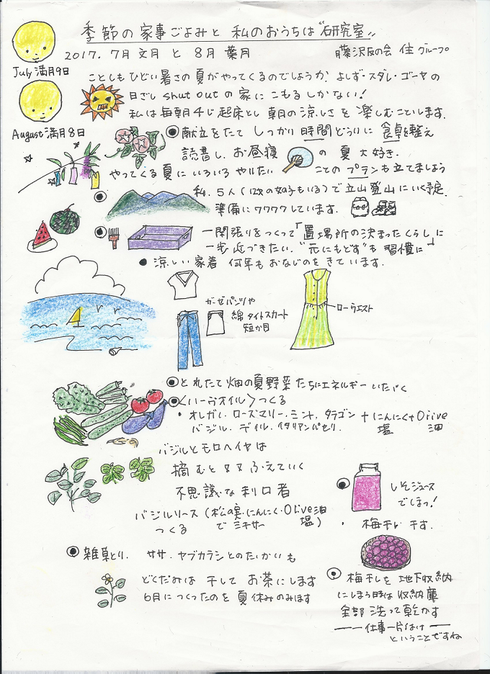 季節の家事ごよみと 私のおうちは"研究室"
2017. 7月 文月 と 8月 葉月
藤沢友の会 住グループ
July 満月9日
ことしもひどい暑さの夏がやってくるのでしようか よしず・スダレ・ゴーヤの
日ざし shut out の家にこもるしかない!
私は毎朝4じ起床とし 朝の涼しさを楽しむことにします。
August 満月8日
献立をたて しっかり時間どうりに 食卓を整え
読書し、お昼寝 の夏大好き.
やってくる夏に いろいろやりたい ことのプランも立てましょう
私、5人(12才の女の子もいる)で立山登山にいく予定、
準備にワクワクしています.
一間張りをつくって「置場所の決まったくらし」に
一歩近づきたい. "元にもどす"も習慣に
涼しい家着 何年もおなじのをきています.
ガーゼパンツや
綿タイトスカート
短か目
ローウエスト
とれたて畑の夏野菜たちにエネルギーいただく
<ハーブオイル>つくる
・オレガノ・ローズマリー・ミント・タラゴン
バジル・ディル・イタリアンパセリ.
+にんにく+Olive油
塩
バジルとモロヘイヤは
摘むとますますふえていく
不思議な利口者
バジルソース(松の実・にんにく・Olive油
塩)
つくる でミキサー
しそジュース
でしょっ!
・梅干し干す.
雑草とり. ササ、ヤブカラシとのたたかいも
どくだみは干してお茶にします
6月につくったのを夏休みのみます
梅干しを地下収納
にしまう時は収納庫
全部洗って乾かす
仕事一片はけ
ということですね